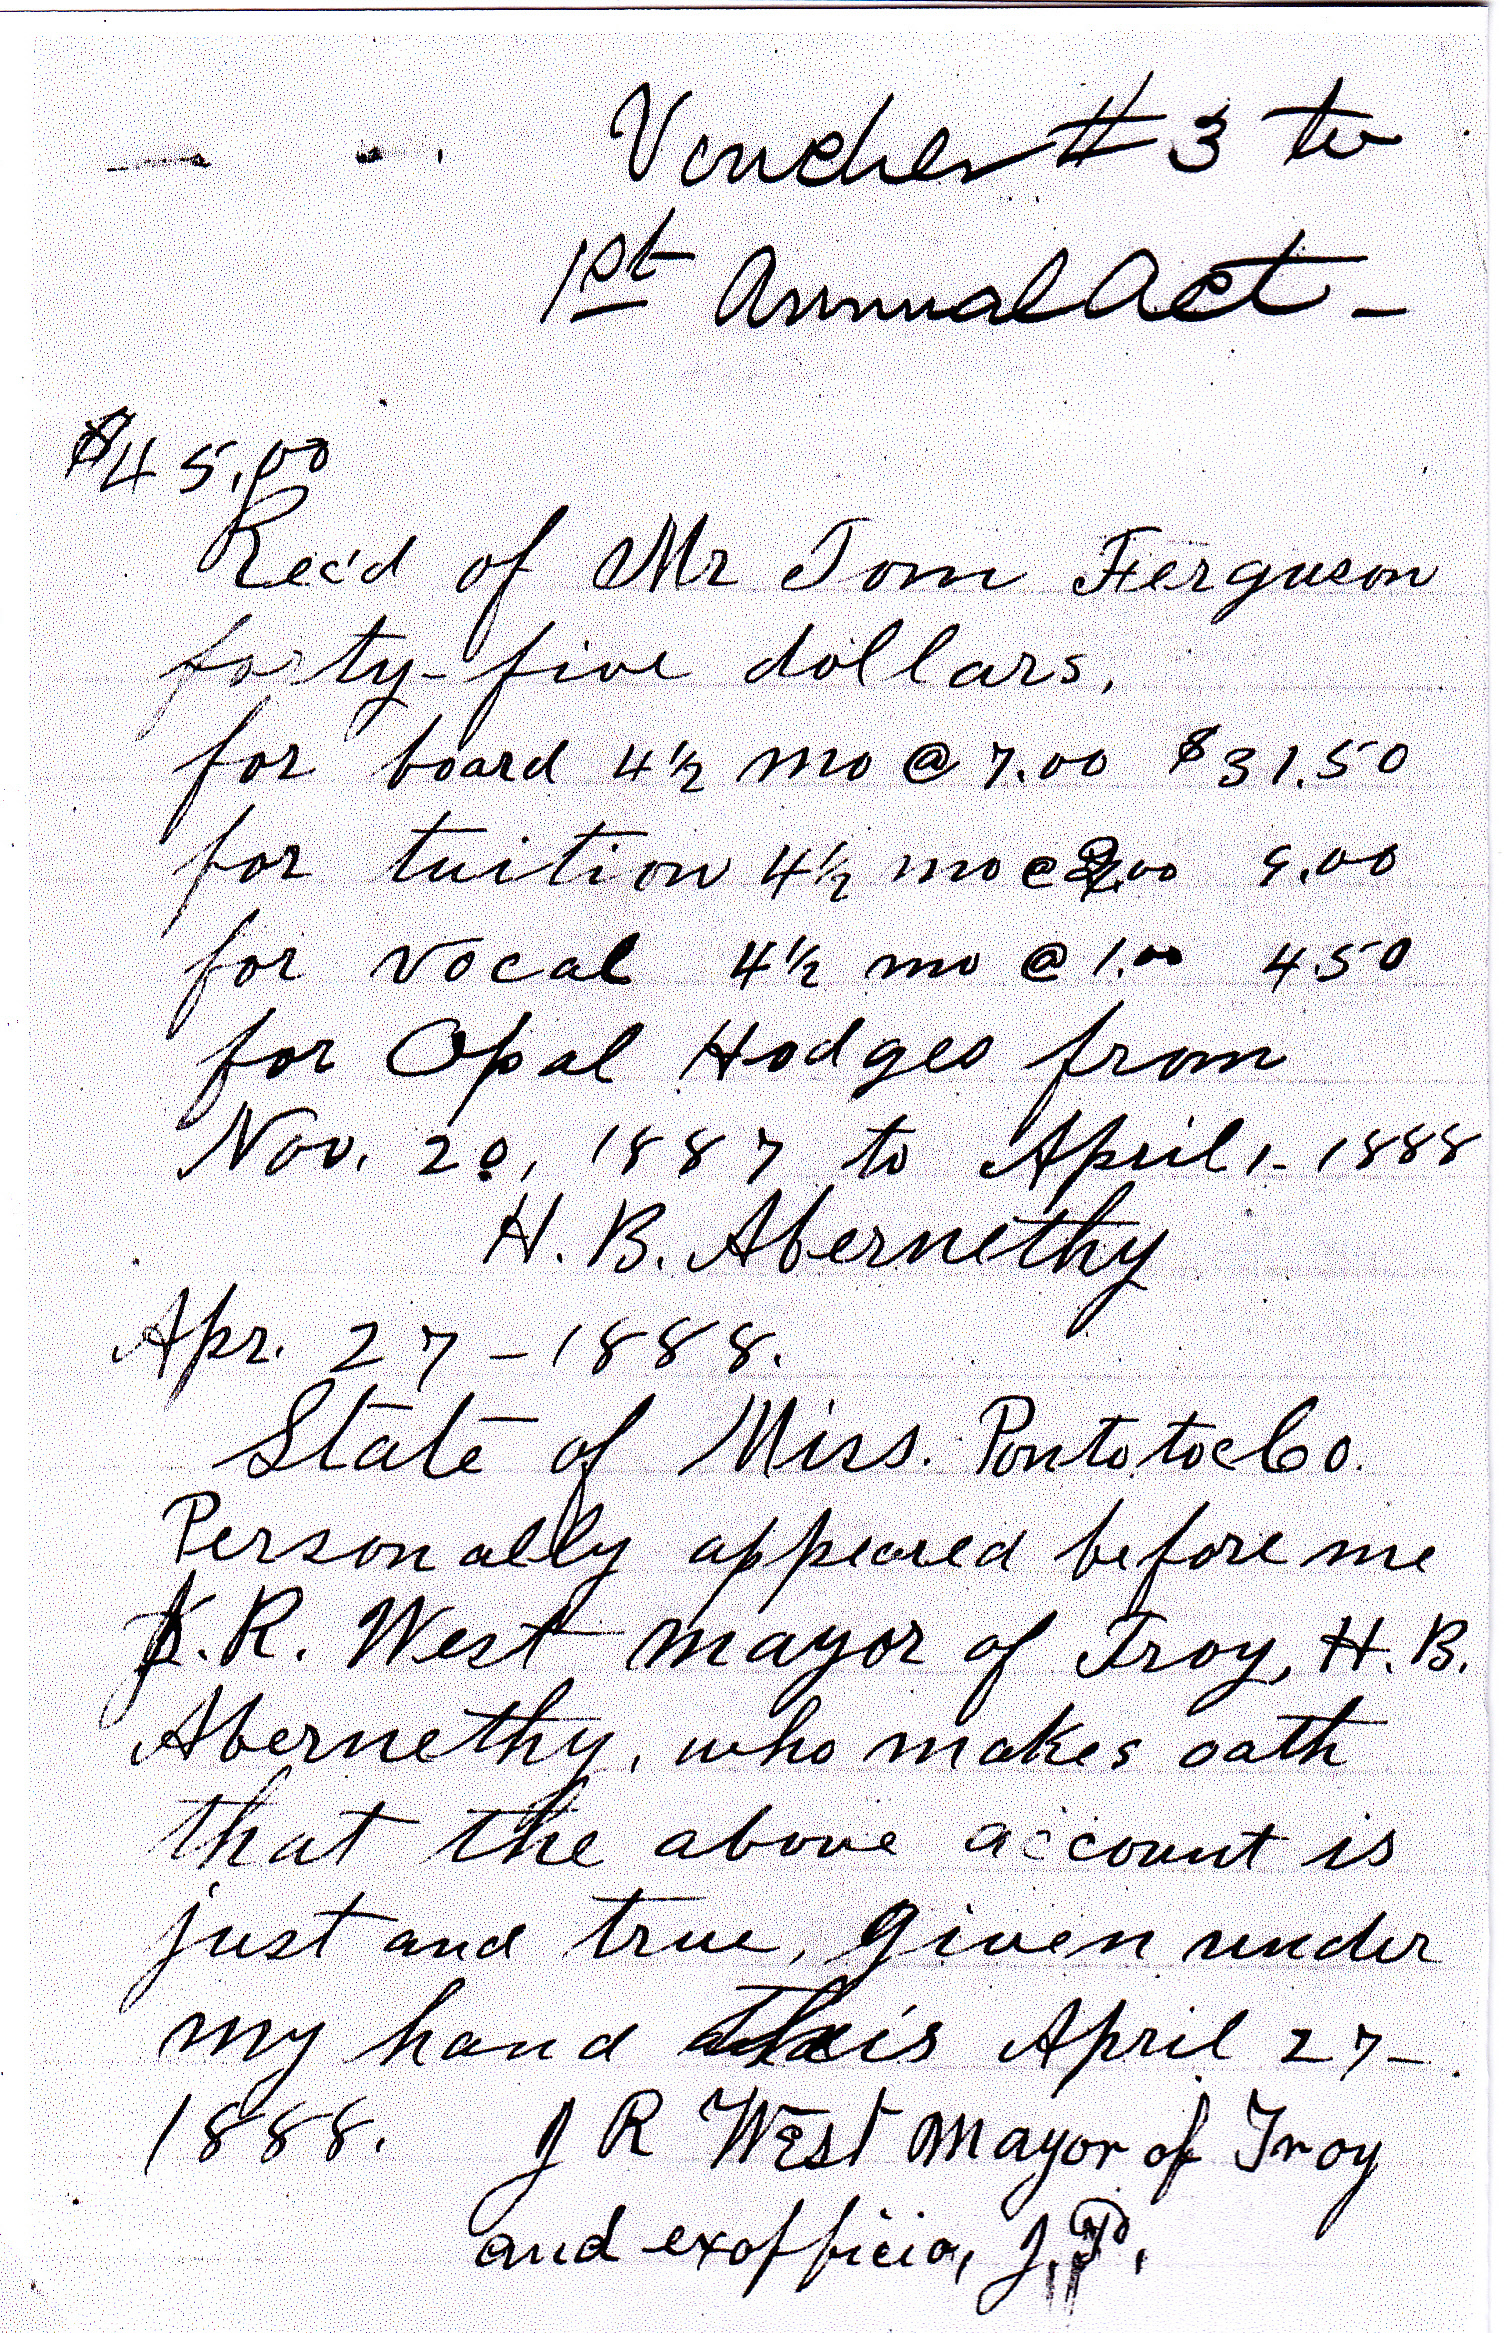 Voucher # 3 to
1st Annual Act -
$45.00
Rec'd of Mr Tom Ferguson
forty-five dollars,
for board 4½ mo @ 7.00 $31.50
for tuition 4½ mo @ 2.00 9.00
for vocal 4½ mo @ 1.00 4.50
for Opal Hodges from
Nov. 20, 1887 to April 1- 1888
H. B. Abernethy
Apr. 27 - 1888.
State of Miss. Pontotoc Co.
Personally appeared before me
J. R. West mayor of Troy, H. B.
Abernethy, who makes oath
that the above account is
just and true, given under
my hand this April 27-
1888. J R West Mayor of Troy
and exofficio, J.P.